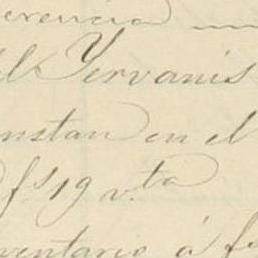 erencia
el Yervanis
nstan en el
fs 19 v.ta
ventario á fs